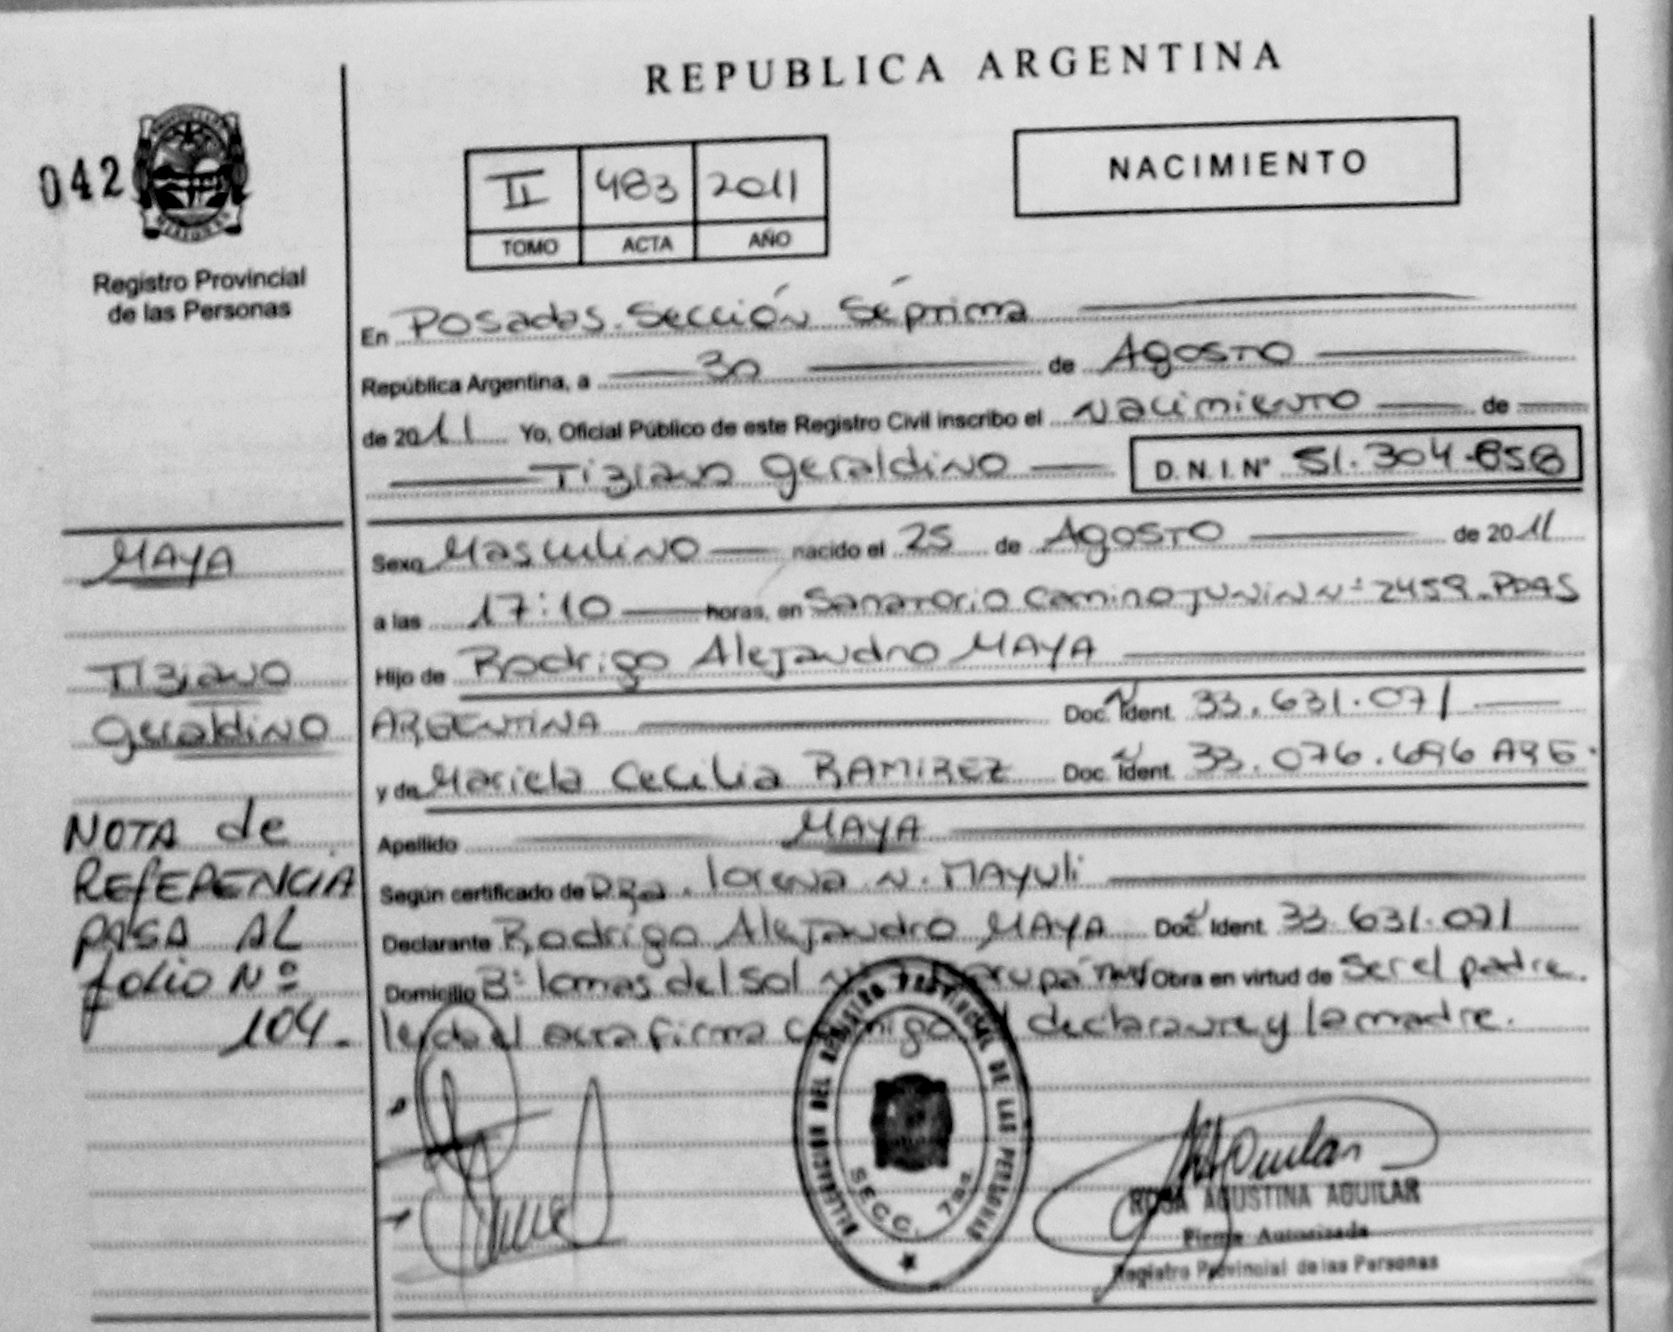 REPUBLICA ARGENTINA
042
NACIMIENTO
II 483 2011
TOMO ACTA AÑO
Registro Provincial
de las Personas
En Posadas. Sección Séptima
República Argentina, a 30 de Agosto
de 2011 Yo, Oficial Público de este Registro Civil inscribo el Nacimiento de
Tiziano Geraldino D.N.I. N° 51.304.858
MAYA
Tiziano
Geraldino
NOTA de
REFERENCIA
PASA AL
folio Nº
104.
Sexo Masculino nacido el 25 de Agosto de 2011
a las 17:10 horas, en Sanatorio Camino Junin N° 2459. PDAS
Hijo de Rodrigo Alejandro MAYA
ARGENTINA Doc. Ident. 33.631.071
y de Mariela Cecilia RAMIREZ Doc. Ident. 33.076.696 ARG.
Apellido MAYA
Según certificado de DRa. Lorena N. MAYULI
Declarante Rodrigo Alejandro MAYA Doc. Ident. 33.631.071
Domicilio B° Lomas del Sol Obra en virtud de Ser el padre.
Leída el acta firma conmigo el declarante y la madre.
DELEGACIÓN DEL REGISTRO PROVINCIAL DE LAS PERSONAS
SECC. 7ma
ROSA AGUSTINA AGUILAR
Firma Autorizada
Registro Provincial de las Personas